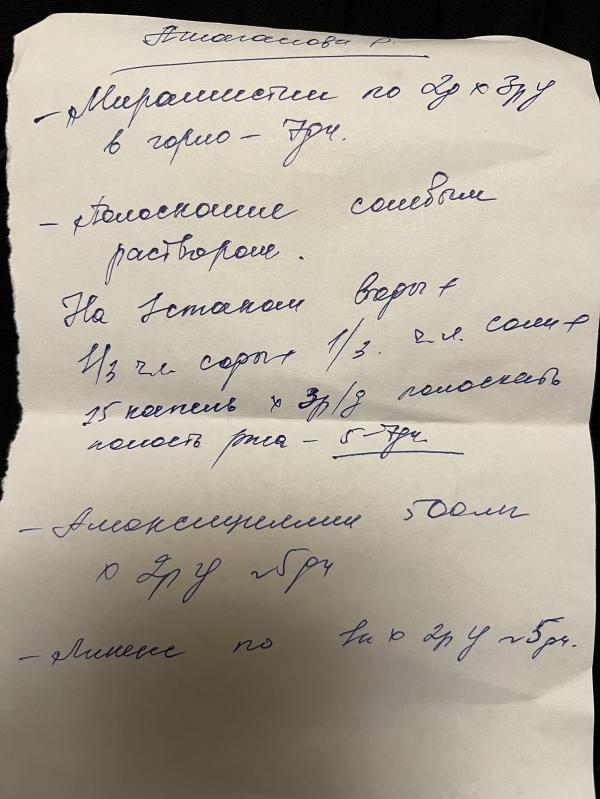 Аташанова Р.
- Мирамистин по 2д х 3р у
в горло - 7дн.
- Полоскание солевым
раствором.
На 1стакан воды +
1/3 ч.л. соды + 1/3. ч.л. соли +
15 капель х 3р/д полоскать
полость рта - 5-7дн
- Амоксициллин 500мг
х 2р у №5дн
- Линекс по 1к х 2р у №5дн.